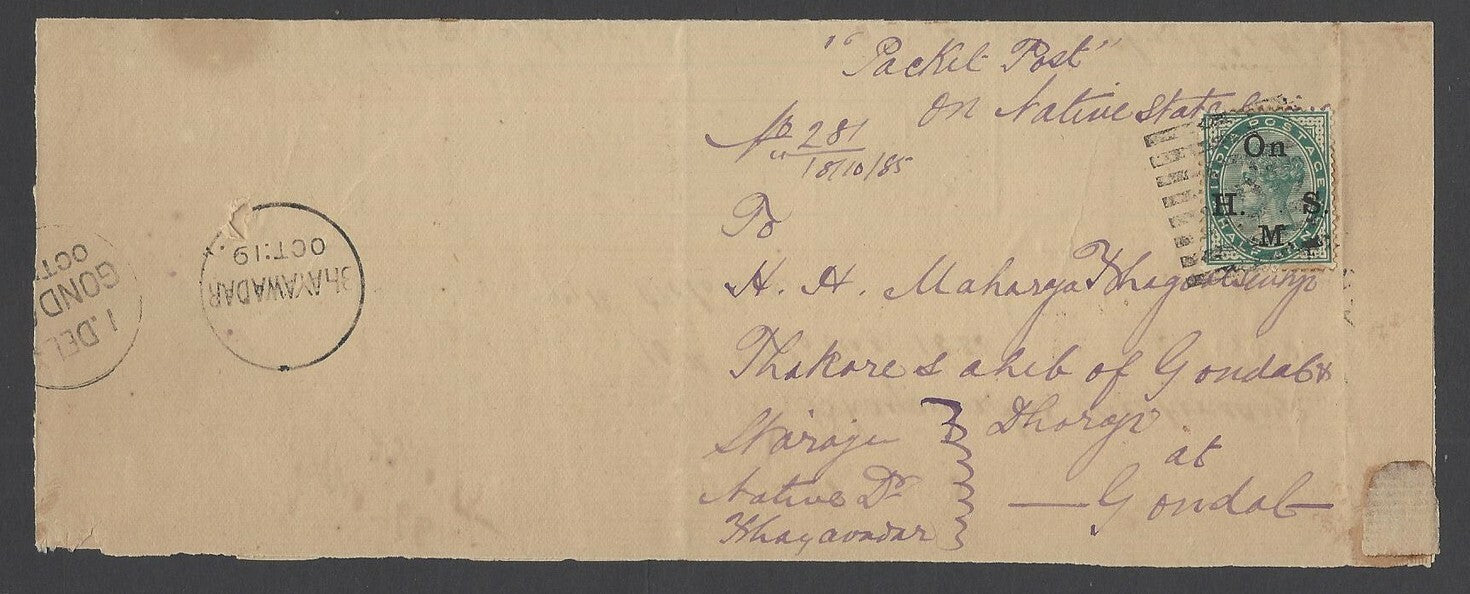 "Packet Post"
On Native State
No 281
18/10/85
To
H. H. Maharaja Bhagvatsinhji
Thakore Saheb of Gondal &
Dhoraji
at
Gondal
Native Dr
Bhayavadar
INDIA POSTAGE
On
H. S.
M
HALF ANNA
BHAYAWADAR
OCT:19
1.DEL
GOND
OCT